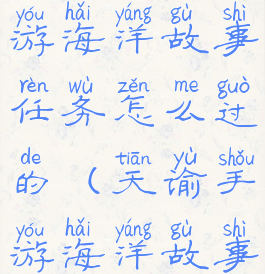 yóu hǎi yáng gù shì
游海洋故事
rèn wù zěn me guò
任务怎么过
de tiān yù shǒu
的（天谕手
yóu hǎi yáng gù shì
游海洋故事